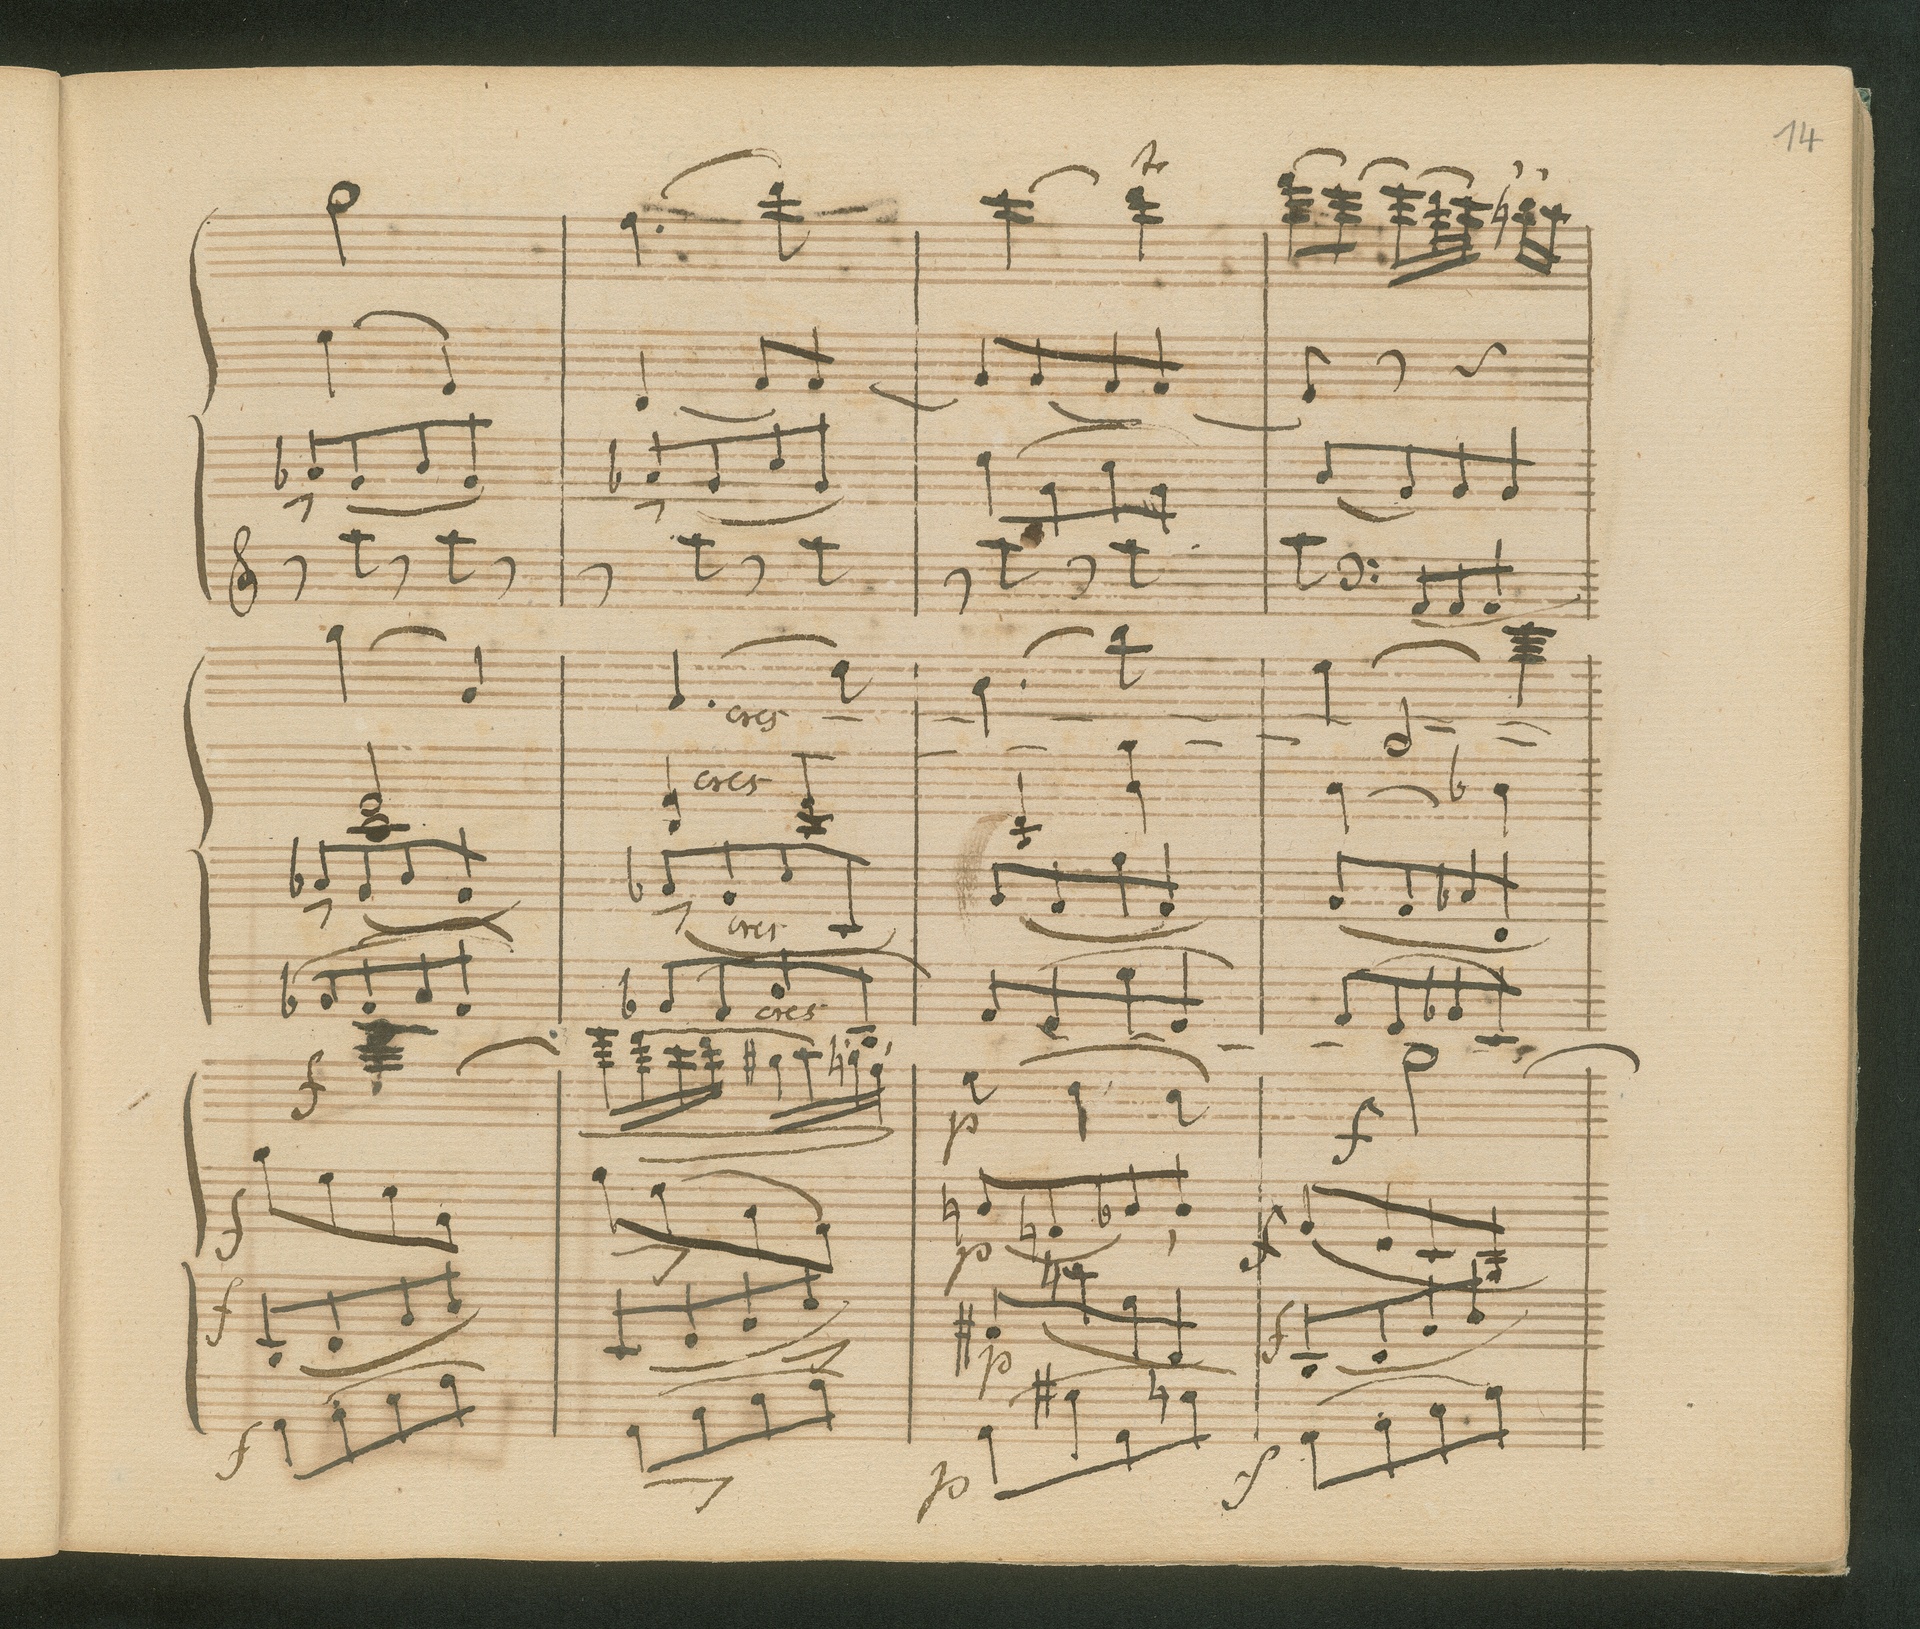 14
cres
cres
cres
cres
f
p
f
f
p
f
f
p
f
f
p
f